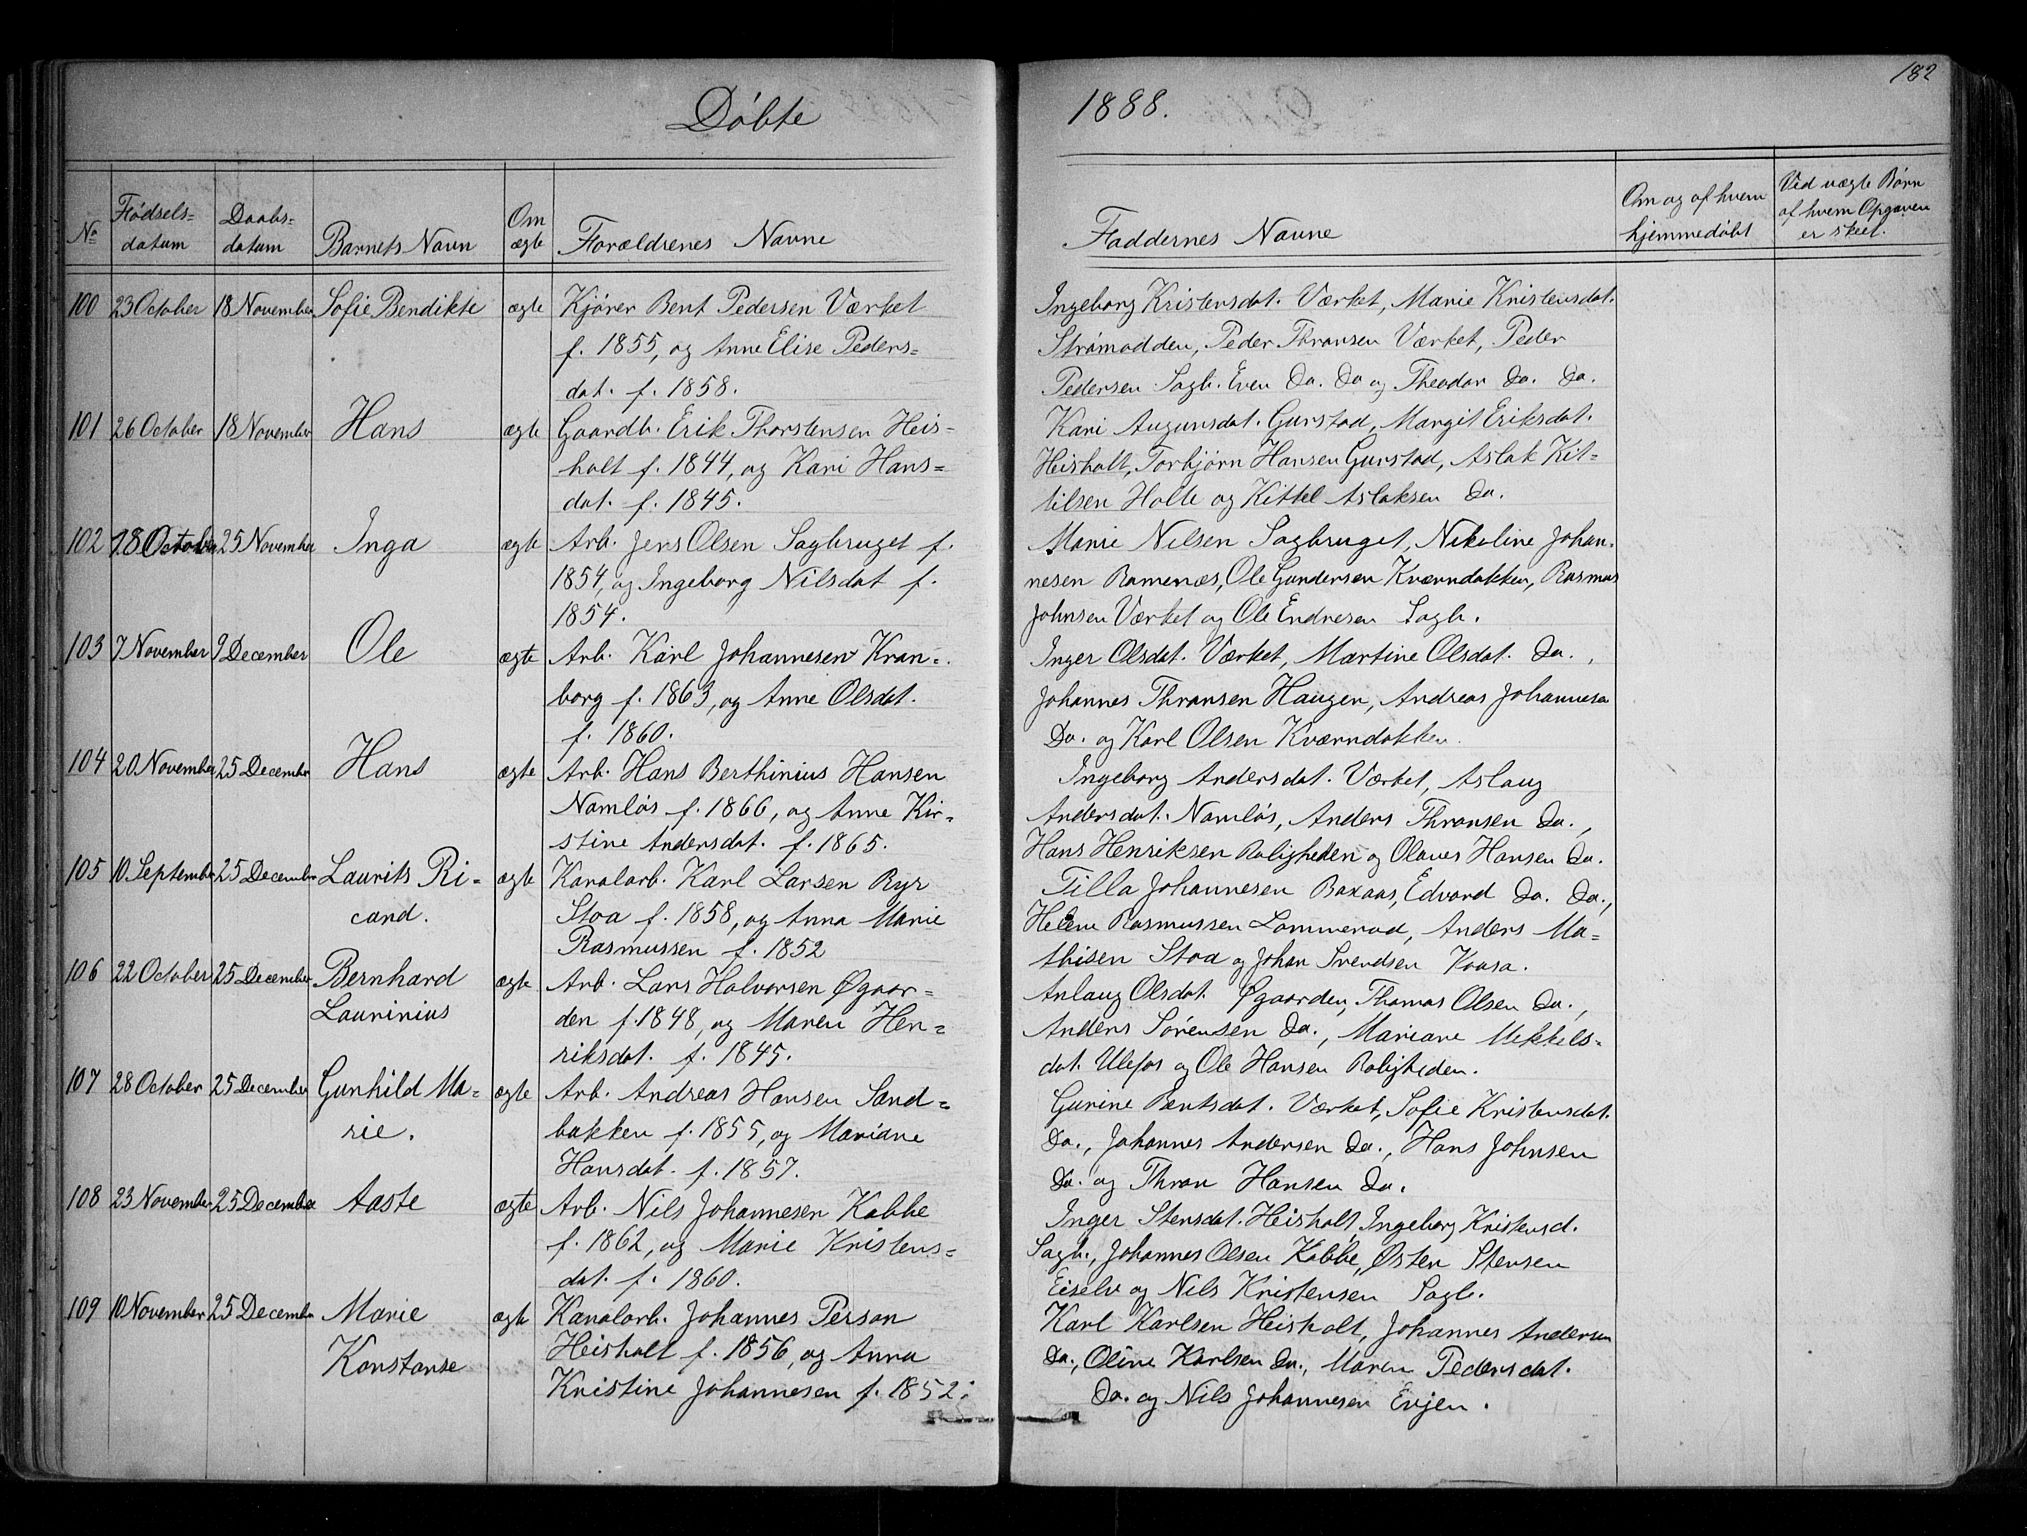 182
Døbte
1888.
No
Fødsels-
datum
Daabs-
datum
Barnets Navn
Om
ægte
Forældrenes Navne
Faddernes Navne
Om og af hvem
hjemmedøbt
Ved uægte Børn
af hvem Opgaven
er skeet.
100 23 October 18 November Sofie Bendikte ægte Kjører Bent Pedersen Værket
f. 1855, og Anne Elise Peders-
dat. f. 1858.
Ingeborg Kristensdat. Værket, Marie Kristensdat.
Strømodden, Peder Thransen Værket, Peder
Pedersen Sagb. Even Do. Do og Theodor Do. Do.
101 26 October 18 November Hans ægte Gaardb. Erik Thorstensen Heis-
holt f. 1844, og Kari Hans-
dat. f. 1845.
Kari Augunsdat. Gurstad, Margit Eriksdat.
Heisholt, Torbjørn Hansen Gurstad, Aslak Kit-
tilsen Holte og Kittel Aslaksen Do.
102 18 October 25 November Inga ægte Arb. Jens Olsen Sagbruget f.
1854, og Ingeborg Nilsdat f.
1854.
Marie Nilsen Sagbruget, Nikoline Johan-
nesen Romenæs, Ole Gundersen Kværndokken, Rasmus
Johnsen Værket og Ole Endresen Sagb.
103 7 November 9 December Ole ægte Arb. Karl Johannesen Kron-
borg f. 1863, og Anne Olsdat.
f. 1860.
Inger Olsdat. Værket, Martine Olsdat. Do.,
Johannes Thransen Haugen, Andreas Johannesen
Do. og Karl Olsen Kværndokken.
104 20 November 25 December Hans ægte Arb. Hans Berthinius Hansen
Namløs f. 1866, og Anne Kir-
stine Andersdat. f. 1865.
Ingeborg Andersdat. Værket, Aslaug
Andersdat. Namløs, Anders Thransen Do.,
Hans Henriksen Roligheden og Olaves Hansen Do.
105 10 September 25 December Laurits Ri-
card.
ægte Kanalarb. Karl Larsen Ryr
Stoa f. 1858, og Anna Marie
Rasmussen f. 1852
Tilla Johannesen Boxaas, Edvard Do. Do.,
Helene Rasmussen Lommerud, Anders Ma-
thisen Stoa og Johan Svendsen Kaasa.
106 22 October 25 December Bernhard
Laurinius
ægte Arb. Lars Halvorsen Øgaar-
den f. 1848, og Maren Hen-
riksdat. f. 1845.
Anlaug Olsdat. Øgaarden, Thomas Olsen Do.,
Anders Sørensen Do., Mariane Mekkels-
dat. Ulefos og Ole Hansen Roligheden.
107 28 October 25 December Gunhild Ma-
rie.
ægte Arb. Andreas Hansen Sand-
bakken f. 1855, og Mariane
Hansdat. f. 1857.
Gurine Bentsdat. Værket, Sofie Kristensdat.
Do., Johannes Andersen Do., Hans Johnsen
Do. og Thron Hansen Do.
108 23 November 25 December Aaste ægte Arb. Nils Johannesen Kabbe
f. 1862, og Marie Kristens-
dat. f. 1860.
Inger Stensdat. Heisholt, Ingeborg Kristensd.
Sagb., Johannes Olsen Kabbe, Østen Stensen
Eiselv og Nils Kristensen Sagb.
109 10 November 25 December Marie
Konstanse
ægte Kanalarb. Johannes Person
Heisholt f. 1856, og Anna
Kristine Johannesen f. 1852.
Karl Karlsen Heisholt, Johannes Andersen
Do., Oline Karlsen Do., Maren Pedersdat.
Do. og Nils Johannesen Evjen.